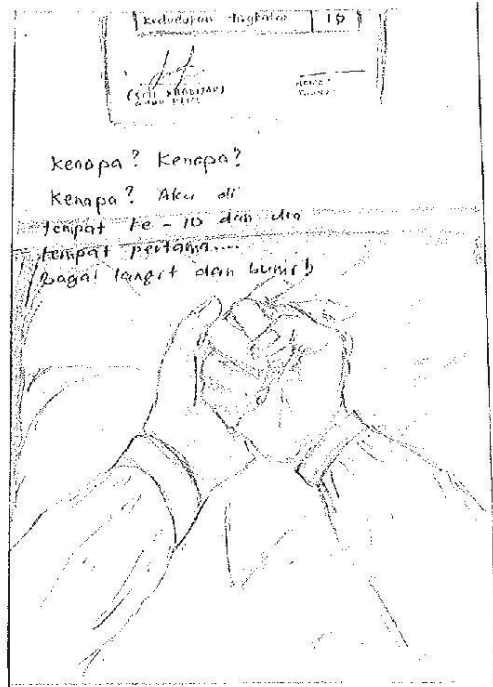 kedudukan tingkatan 10
(SITI KHADIJAH)
GURU KELAS
Kenapa? Kenapa?
Kenapa? Aku di
tempat ke-10 dan dia
tempat pertama....
Bagai langit dan bumi!